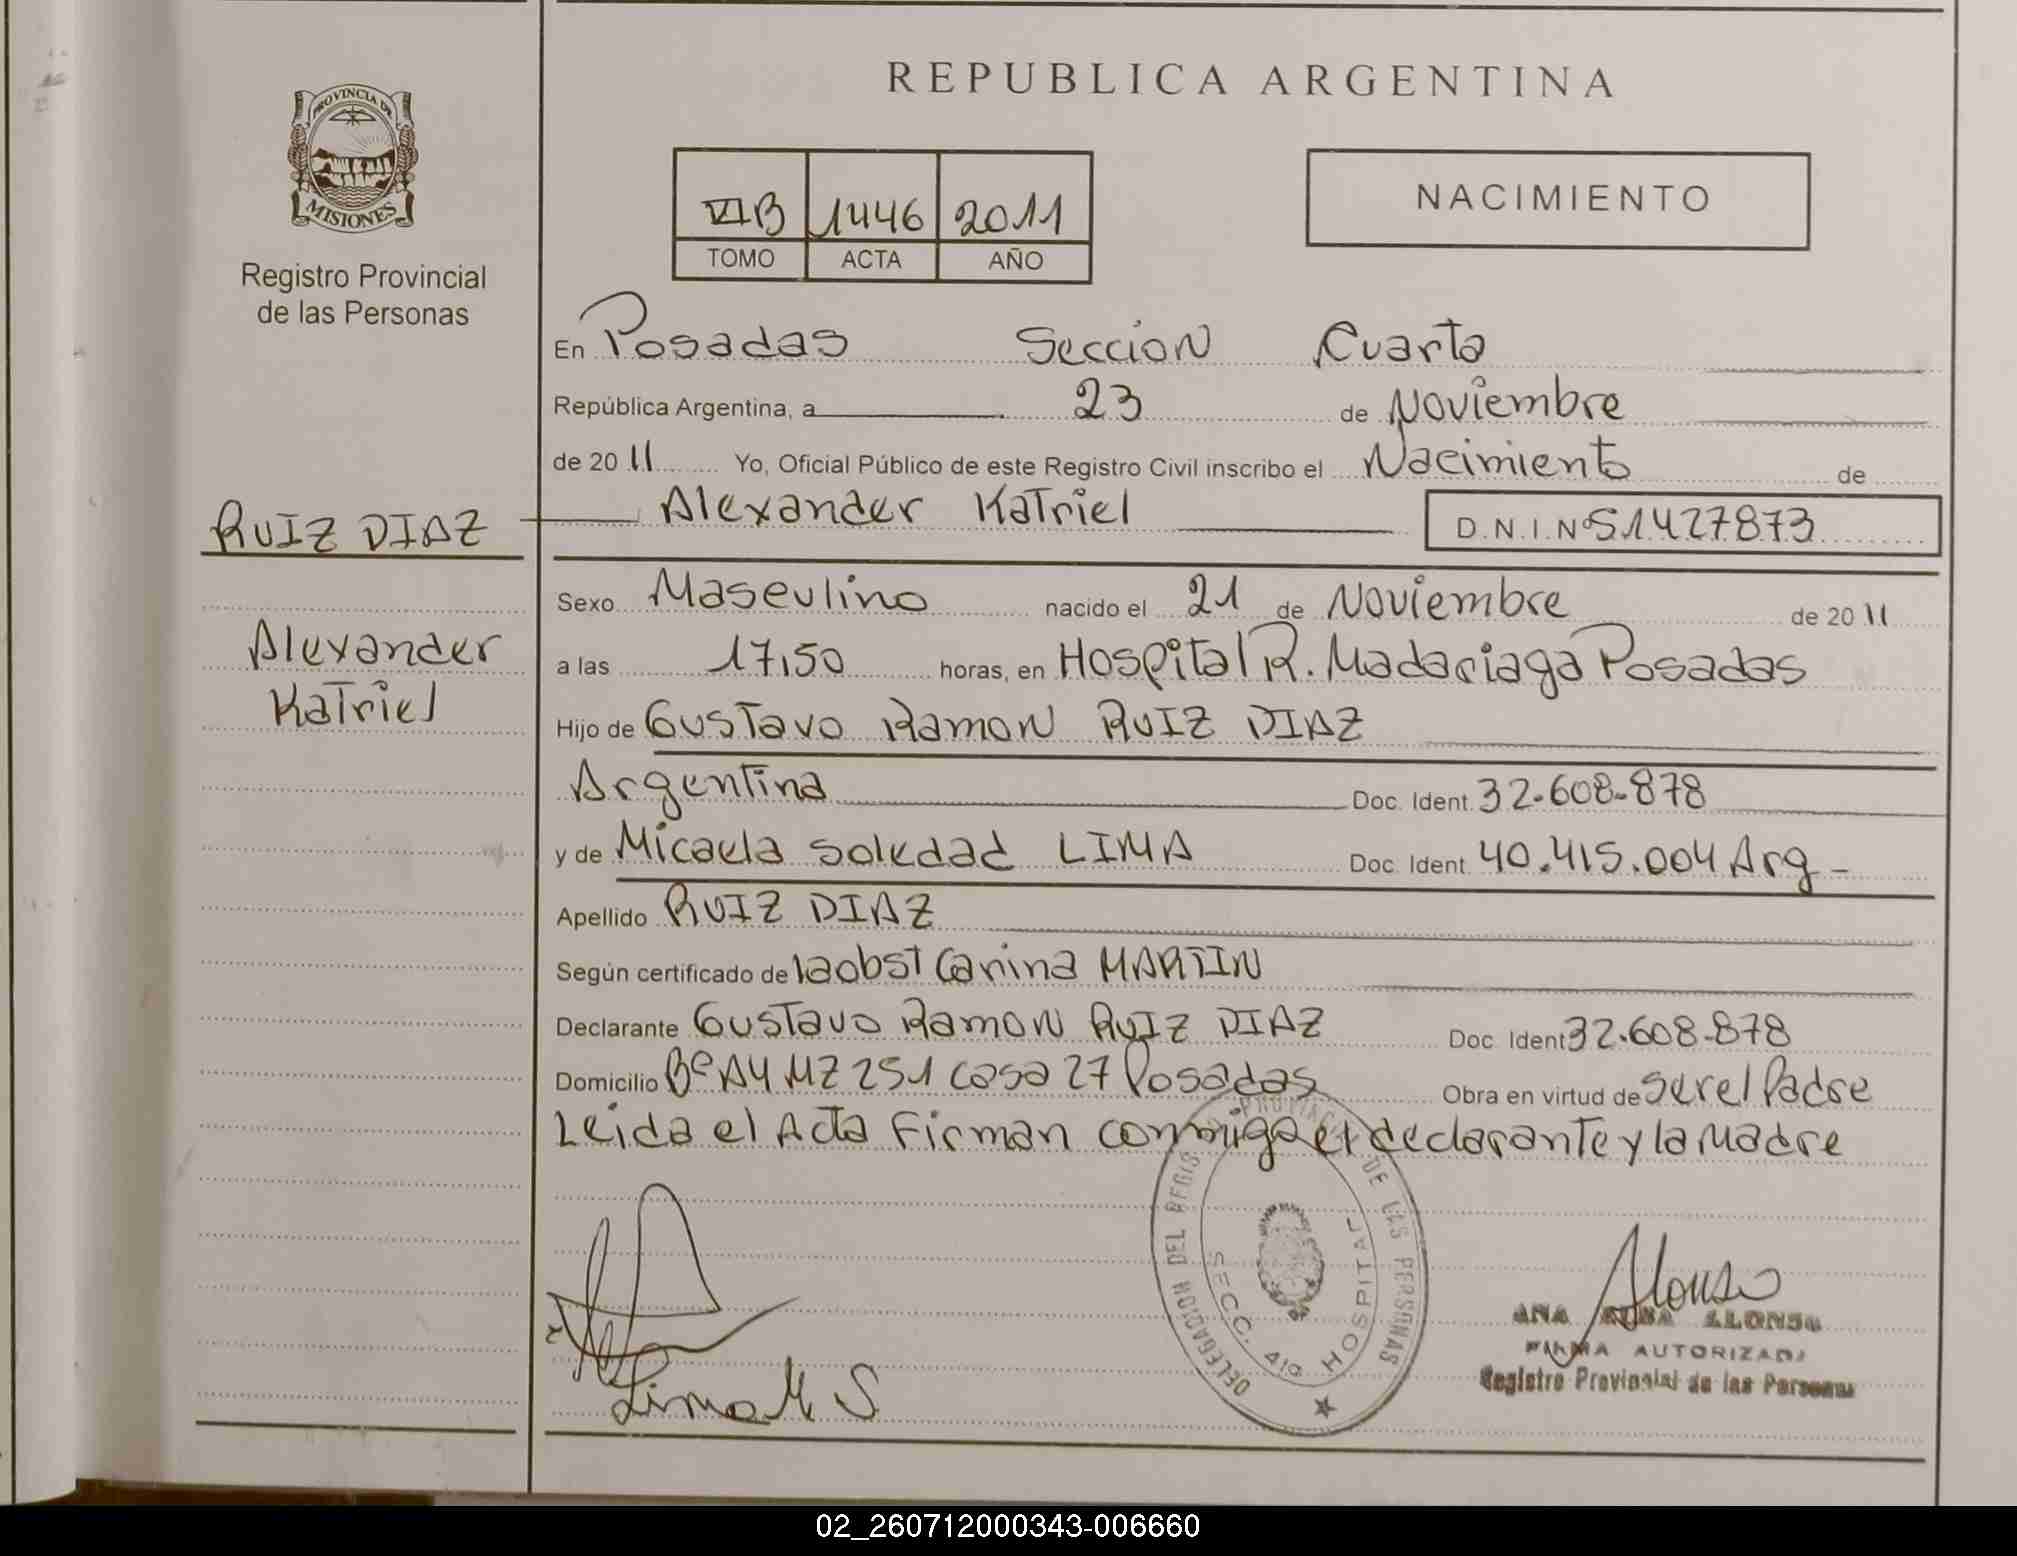 REPUBLICA ARGENTINA
PROVINCIA DE
MISIONES
Registro Provincial
de las Personas
VI B 1446 2011
TOMO ACTA AÑO
NACIMIENTO
En Posadas Seccion Cuarta
República Argentina, a 23 de Noviembre
de 20 11 Yo, Oficial Público de este Registro Civil inscribo el Nacimiento de
RUIZ DIAZ Alexander Katriel D.N.I.Nº 51427873
Sexo Masculino nacido el 21 de Noviembre de 20 11
Alexander
a las 17,50 horas, en Hospital R. Madariaga Posadas
Katriel
Hijo de Gustavo Ramon RUIZ DIAZ
Argentina Doc. Ident. 32.608.878
y de Micaela Soledad LIMA Doc. Ident. 40.415.004 Arg -
Apellido RUIZ DIAZ
Según certificado de la obst Carina MARTIN
Declarante Gustavo Ramon RUIZ DIAZ Doc. Ident 32.608.878
Domicilio Bº A4 MZ 251 Casa 27 Posadas Obra en virtud de ser el Padre
Leida el Acta Firman conmigo el declarante y la Madre
DELEGACION DEL REGIS PROVINCIAL DE LAS PERSONAS
SECC. 4ta HOSPITAL
Lima M S
Alonso
ANA ALONSO
FIRMA AUTORIZADA
Registro Provincial de las Personas
02_260712000343-006660